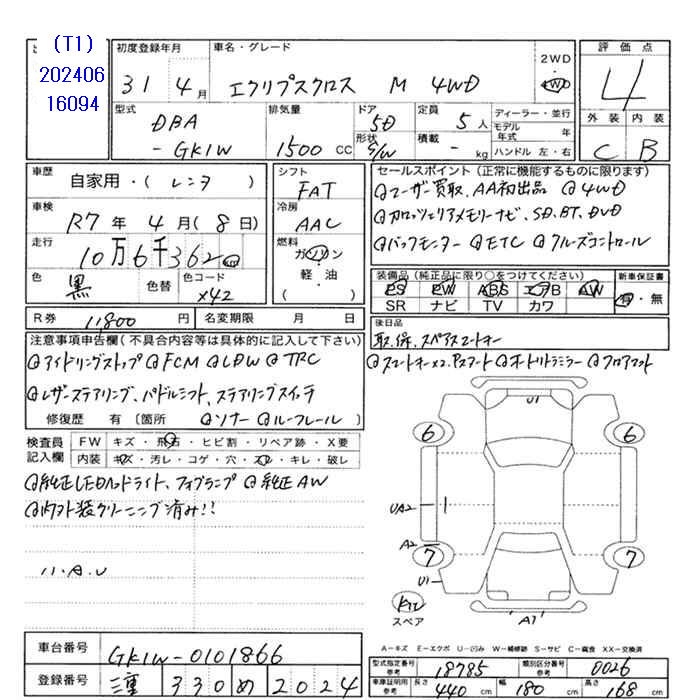 (T1)
202406
16094
初度登録年月
31 4月
車名・グレード
エクリプスクロス M 4WD
2WD
4WD
評価点
4
外装 内装
C B
型式
DBA
-GK1W
排気量
1500 CC
ドア
5D
形状
S/W
定員
5人
積載
- kg
ディーラー・並行
モデル年式 年
ハンドル 左・右
車歴
自家用・(レンタ)
車検
R7年 4月(8日)
走行
10万6千362 km
色
黒
色替
色コード
X42
シフト
FAT
冷房
AAC
燃料
ガソリン
・
軽・油
( )
セールスポイント(正常に機能するものに限ります)
◎ユーザー買取、AA初出品 ◎4WD
◎カロッツェリアメモリーナビ、SD、BT、DVD
◎バックモニター ◎ETC ◎クルーズコントロール
装備品(純正品に限り○をつけてください)
PS PW ABS エアB AW
SR ナビ TV カワ
新車保証書
有・無
R券 11,800円
名変期限 月 日
後日品
取、保、スペアスマートキー
注意事項申告欄(不具合内容等は具体的に記入して下さい)
◎アイドリングストップ ◎FCM ◎LDW ◎TRC
◎スマートキーx2、Pスタート ◎オートリトラミラー ◎フロアマット
◎レザーステアリング、パドルシフト、ステアリングスイッチ
修復歴 有〔箇所 ◎ソナー ◎ルーフレール )
検査員記入欄
FW キズ・飛石・ヒビ割・リペア跡・X要
内装 キズ・汚レ・コゲ・穴・スレ・キレ・破レ
◎純正LEDヘッドライト、フォグランプ ◎純正AW
◎ソフト装クリーニング済み!!
ハ.A.U
U1
6 6
UA2
A2
7 7
U1
A1
スペア
A-キズ E-エクボ U-凹み W-補修跡 S-サビ C-腐食 XX-交換済
車台番号 GK1W-0101866
登録番号 三重 330 め 2024
型式指定番号 参考 18785
類別区分番号 参考 0026
車庫証明用 参考 長さ 440 cm 幅 180 cm 高さ 168 cm